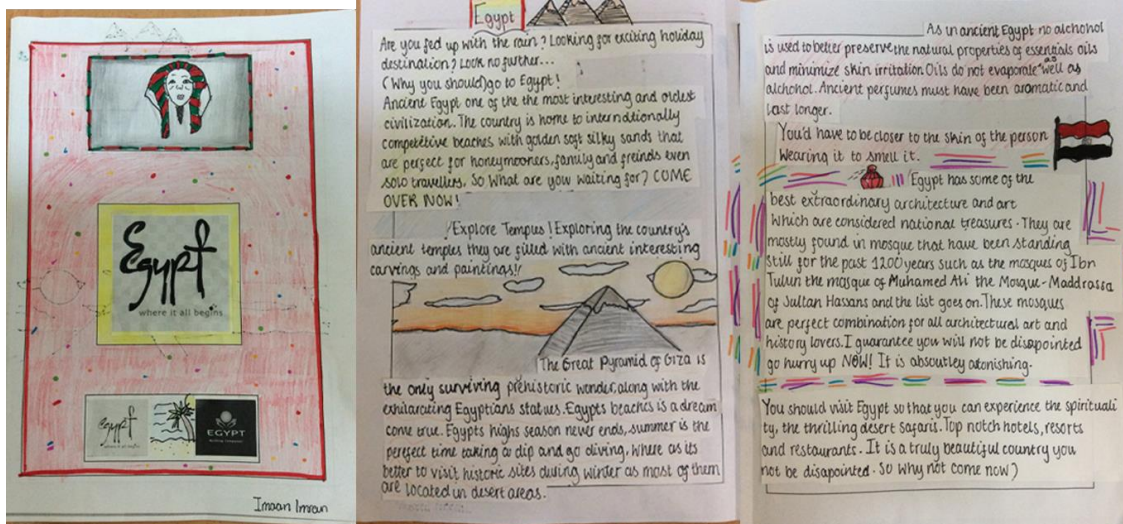 Egypt
where it all begins
Egypt
where it all begins
EGYPT
Imaan Imran
Egypt
Are you fed up with the rain? Looking for exciting holiday
destination? Look no further...
(Why you should) go to Egypt!
Ancient Egypt one of the the most interesting and oldest
civilization. The country is home to internationally
competitive beaches with golden soft silky sands that
are perfect for honeymooners, family and freinds even
solo travellers. So What are you waiting for? COME
OVER NOW!
Explore Temples! Exploring the country's
ancient temples they are filled with ancient interesting
carvings and paintings!!
The Great Pyramid of Giza is
the only surviving prehistoric wonder, along with the
exhilarating Egyptians statues. Egypts beaches is a dream
come true. Egypts highs season never ends, summer is the
perfect time taking a dip and go diving, where as its
better to visit historic sites during winter as most of them
are located in desert areas.
As in ancient Egypt no alchohol
is used to better preserve the natural properties of essentials oils
and minimize skin irritation. Oils do not evaporate as well as
alchohol. Ancient perfumes must have been aromatic and
last longer.
You'd have to be closer to the skin of the person
Wearing it to smell it.
Egypt has some of the
best extraordinary architecture and art
Which are considered national treasures. They are
mostly found in mosque that have been standing
still for the past 1200 years such as the mosques of Ibn
Tulun the mosque of Muhamed Ali the Mosque-Maddrassa
of Sultan Hassans and the list goes on. These mosques
are perfect combination for all architectural art and
history lovers. I guarantee you will not be disapointed
go hurry up NOW! It is absoutley astonishing.
You should visit Egypt so that you can experience the spirituali
ty, the thrilling desert safaris. Top notch hotels, resorts
and restaurants. It is a truly beautiful country you
not be disapointed. So why not come now?